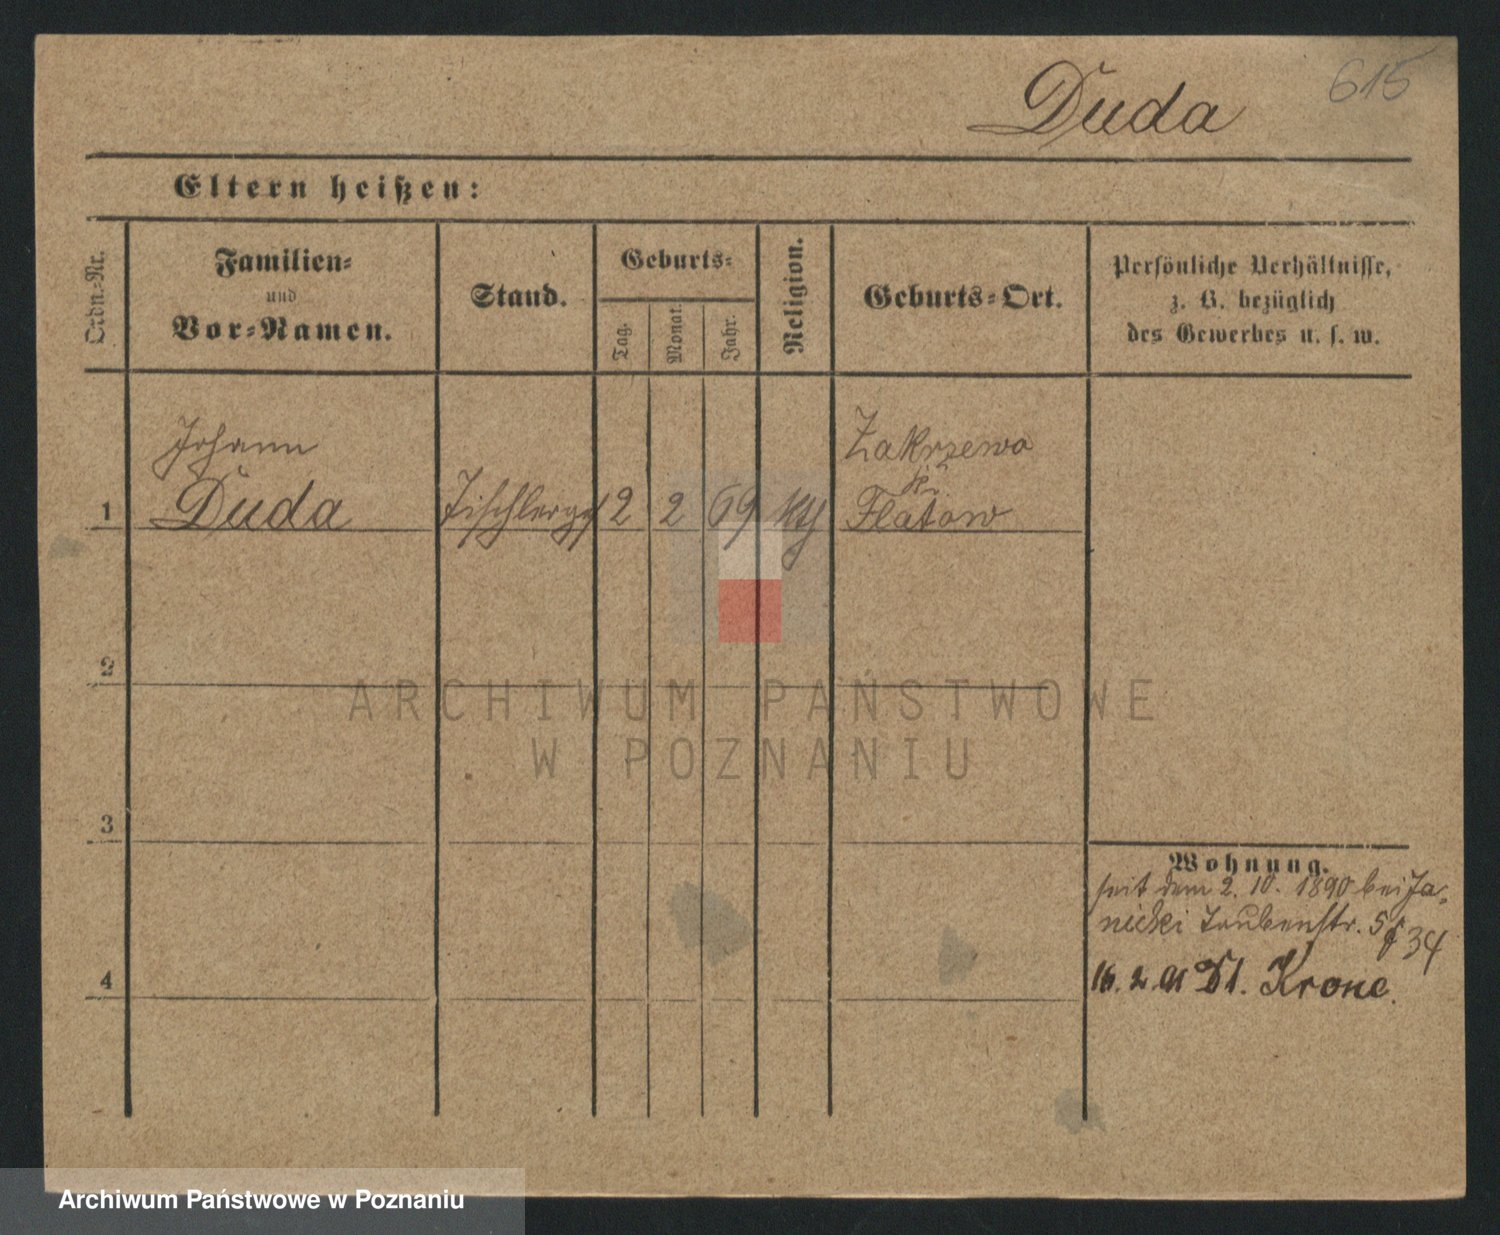 615
Duda
Eltern heißen:
Ordn.-Nr.
Familien-
und
Vor-Namen.
Stand.
Geburts-
Tag.
Monat.
Jahr.
Religion.
Geburts-Ort.
Persönliche Verhältnisse,
z. B. bezüglich
des Gewerbes u. s. w.
Johann
Zakrzewo
Kr.
1 Duda Tischlerges 2 2 69 kth Flatow
2
3
4
Wohnung.
seit dem 2. 10. 1890 bei Ja-
nicki Taubenstr. 5
34
16. 2. 91 Dt. Krone.
ARCHIWUM PAŃSTWOWE
W POZNANIU
Archiwum Państwowe w Poznaniu